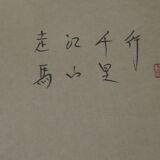 走江千行
馬山里